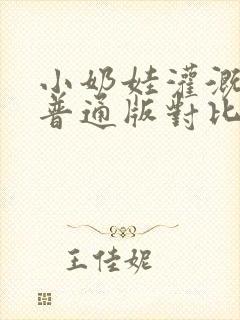 小奶娃灌溉
普通版對比
王佳妮